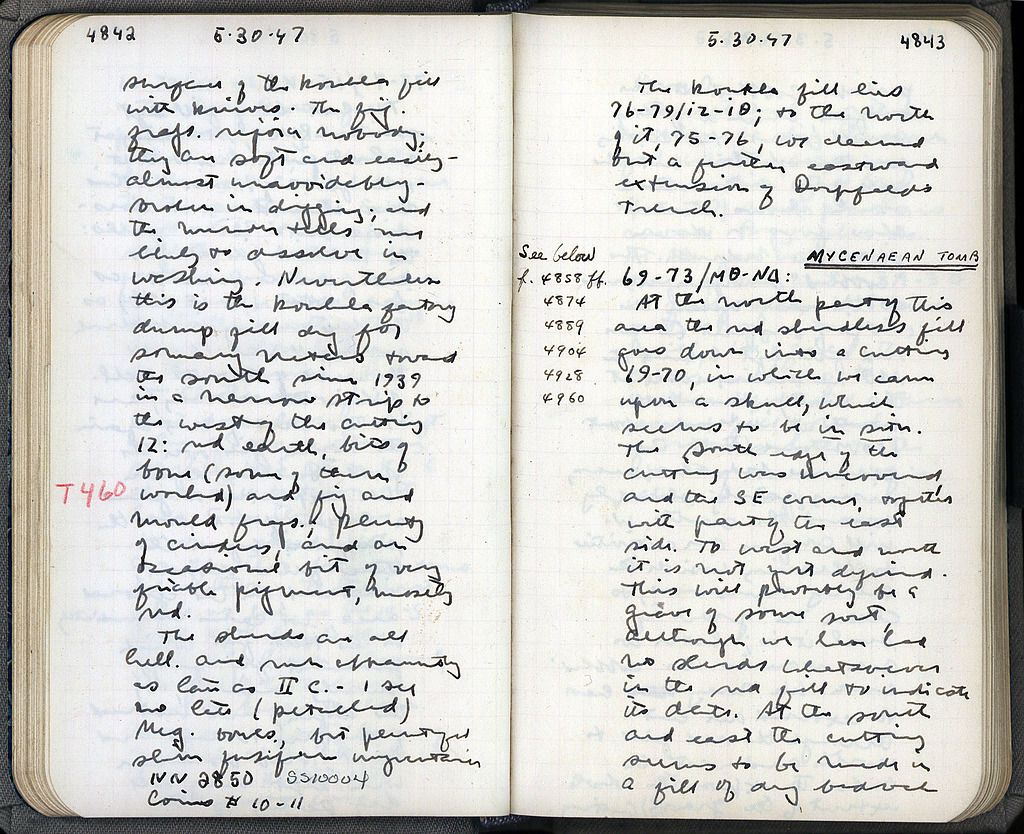 4842 5·30·47
surface of the koukla fill
with knives. The fig.
frags. rejoice nobody;
they are soft and easily –
almost unavoidably –
broken in digging, and
the minor ones are
likely to dissolve in
washing. Nevertheless
this is the koukla factory
dump fill dug for
so many meters toward
the south since 1939
in a narrow strip to
the west of the cutting
12: red earth, bits of
bone (some of them
T460 worked) and fig and
mould frags., plenty
of cinders, and an
occasional bit of very
friable pigment, mostly
red.
The sherds are all
hell. and run apparently
as late as II C. – I see
no late (petalled)
Meg. bowls, but plenty of
slim fusiform unguentaria
NN 2850 SS10004
Coins # 10-11
5·30·47 4843
The koukla fill lies
76-79/12-18; to the north
of it, 75-76, we cleaned
but a further eastward
extension of Dorpfeld's
Trench.
MYCENAEAN TOMB
See below
f. 4858 ff. 69-73/ΜΘ-ΝΔ:
4874 At the north part of this
4889 area the red sherdless fill
4904 goes down into a cutting
4928 69-70, in which we came
4960 upon a skull, which
seems to be in situ.
The south edge of the
cutting was uncovered,
and the SE corner, together
with part of the east
side. To west and north
it is not yet defined.
This will probably be a
grave of some sort,
although we have had
no sherds whatsoever
in the red fill to indicate
its date. At the south
and east the cutting
seems to be made in
a fill of dug bedrock